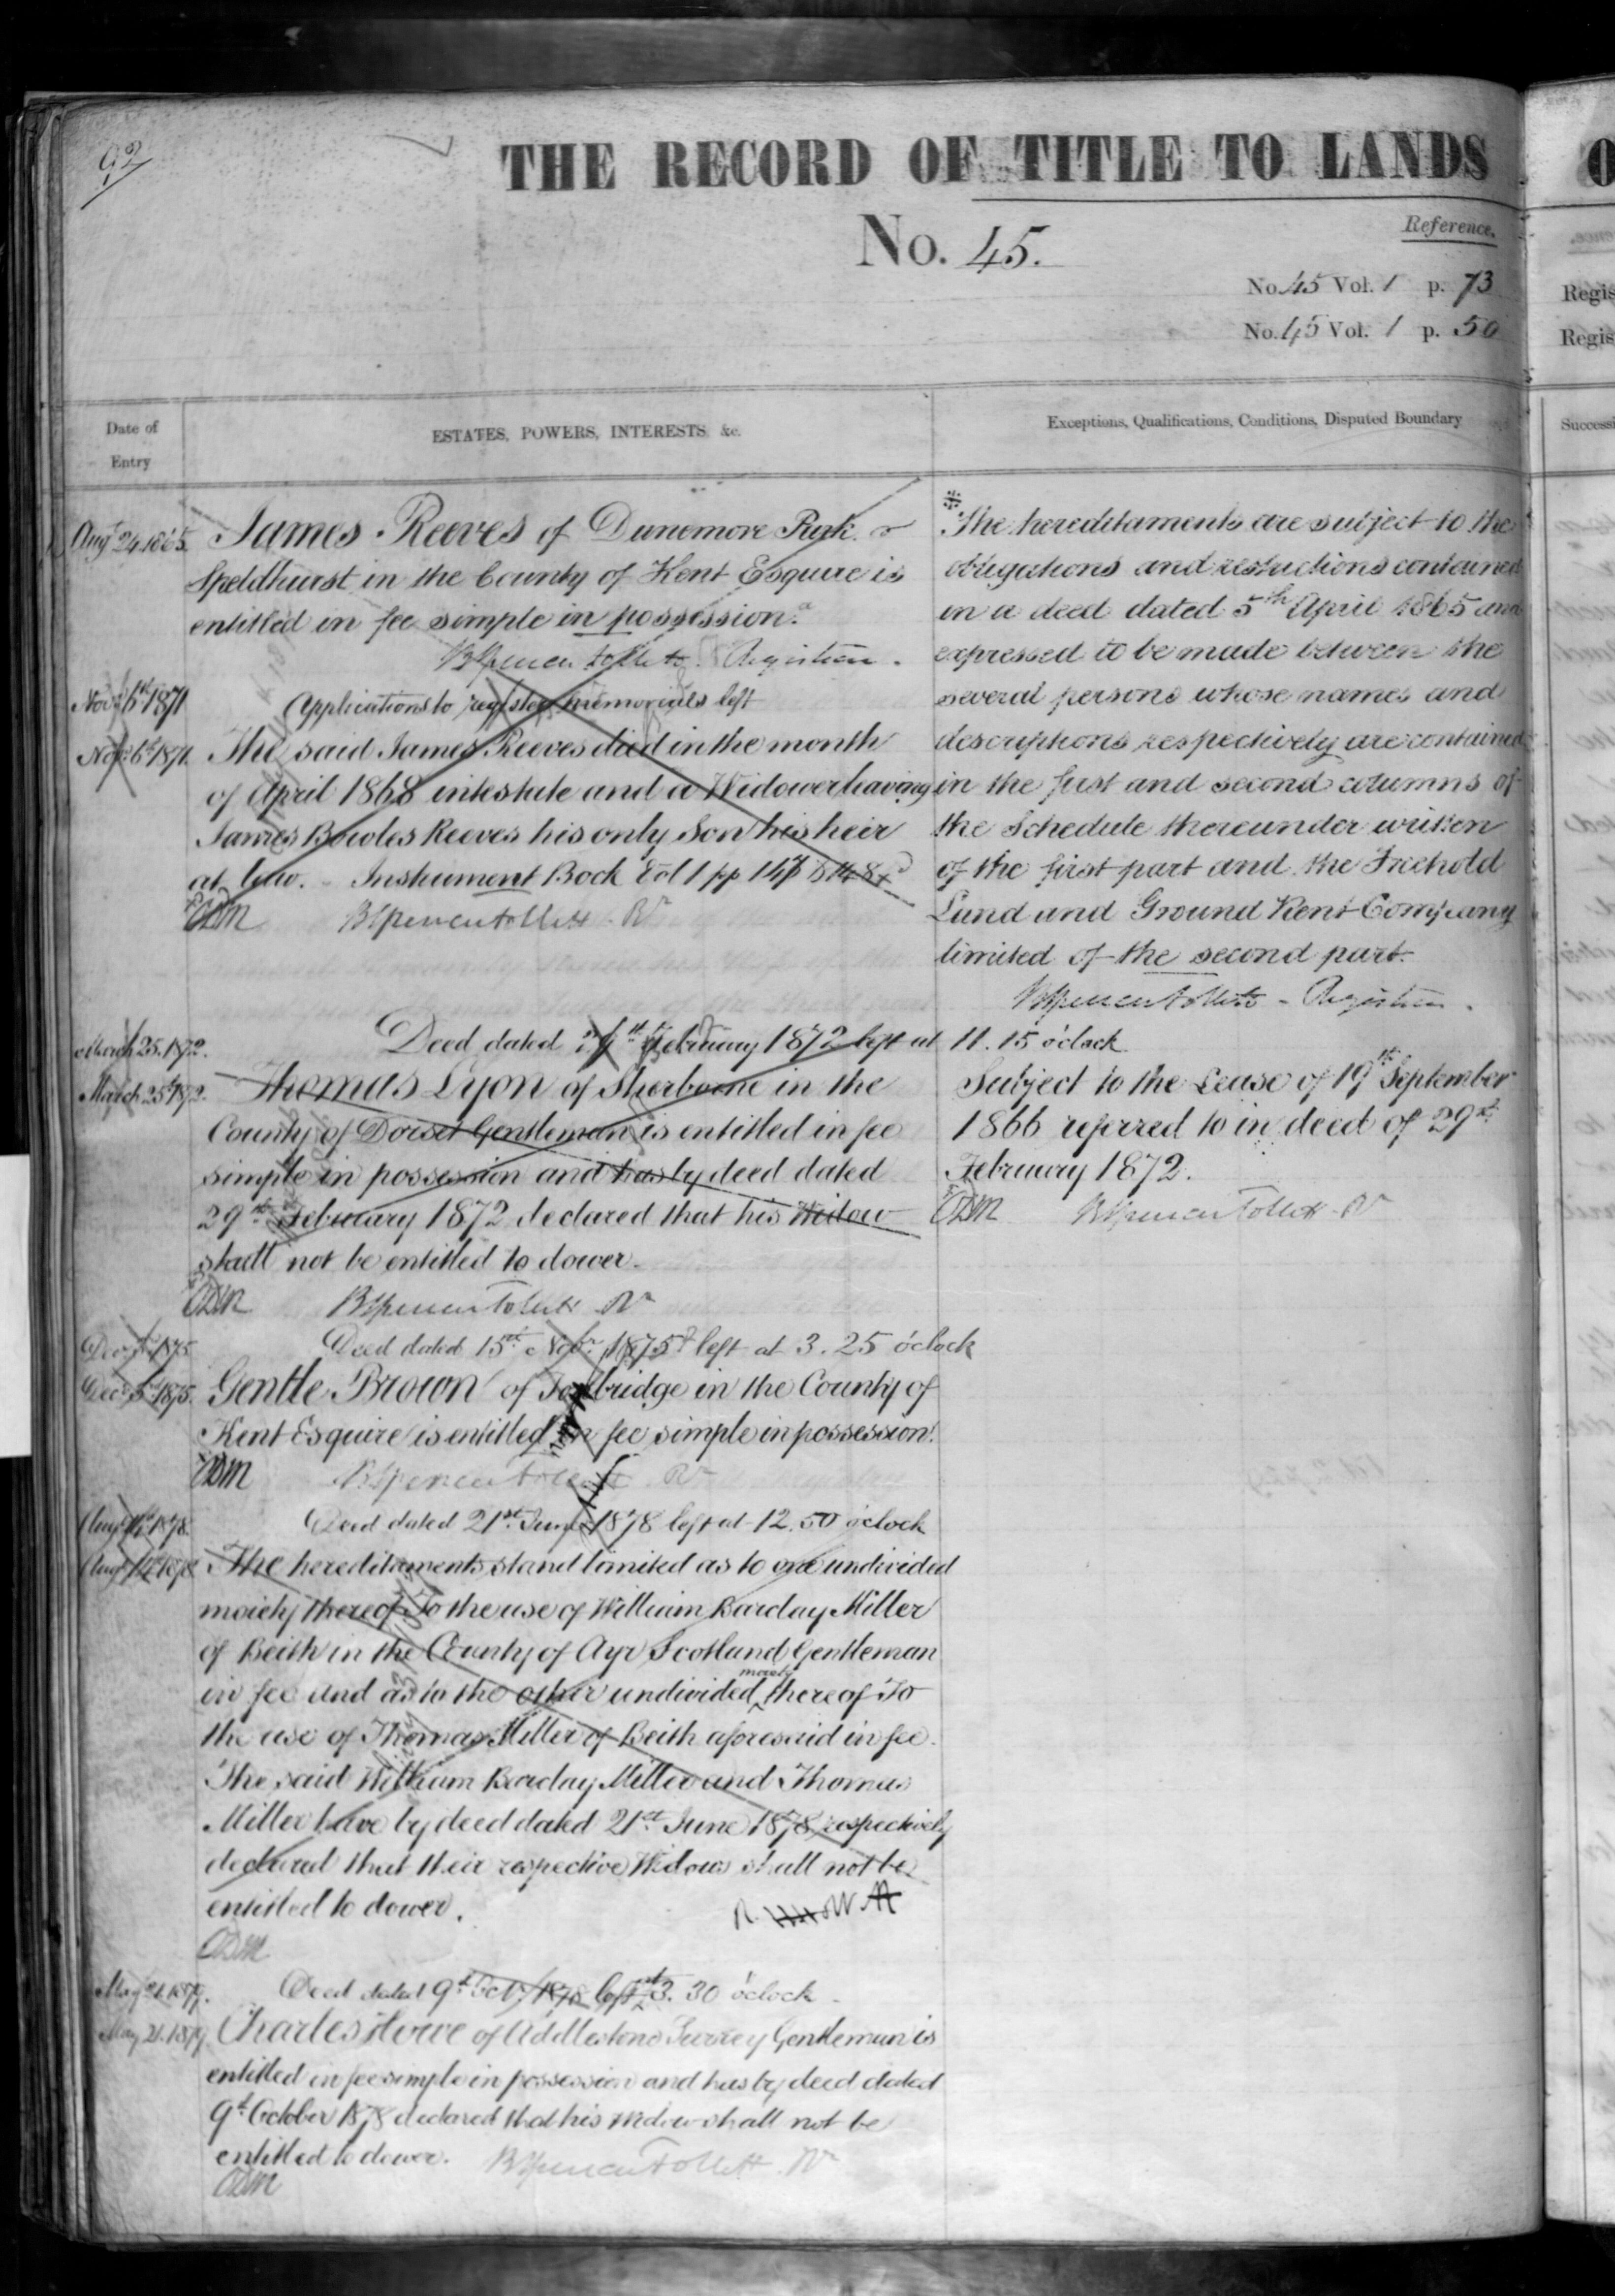 92
THE RECORD OF TITLE TO LANDS
No. 45.
Reference.
No. 45 Vol. 1 p. 73
No. 45 Vol. 1 p. 50
Date of Entry
ESTATES, POWERS, INTERESTS &c.
Exceptions, Qualifications, Conditions, Disputed Boundary
Augt 24. 1865. James Reeves of Dunemore Park
Speldhurst in the County of Kent Esquire is
entitled in fee simple in possession.
BSpencer Follett Registrar.
Novr 6th 1871 Applications to register memorials left
Novr 6th 1871. The said James Reeves died in the month
of April 1868 intestate and a Widower leaving
James Bowles Reeves his only Son his heir
at law. Instrument Book Vol 1 pp 147 & 148
CDM BSpencer Follett Rr
March 25. 1872. Deed dated 29th February 1872 left at 11.15 o'clock
March 25th 1872. Thomas Lyon of Sherborne in the
County of Dorset Gentleman is entitled in fee
simple in possession and has by deed dated
29th February 1872 declared that his Widow
shall not be entitled to dower.
CDM BSpencer Follett Rr
Decr 1875 Deed dated 15th Novr 1875 left at 3.25 o'clock
Decr 1875. Gentle Brown of Tonbridge in the County of
Kent Esquire is entitled in fee simple in possession.
CDM BSpencer Follett Rr
Augt 14th 1878. Deed dated 21st June 1878 left at 12.50 o'clock
Augt 14th 1878. The hereditaments stand limited as to one undivided
moiety thereof To the use of William Barclay Miller
of Beith in the County of Ayr Scotland Gentleman
in fee and as to the other undivided moiety thereof To
the use of Thomas Miller of Beith aforesaid in fee.
The said William Barclay Miller and Thomas
Miller have by deed dated 21st June 1878 respectively
declared that their respective Widows shall not be
entitled to dower.
CDM
May 21. 1879. Deed dated 9th Octr 1878 left at 3.30 o'clock
May 21. 1879 Charles Howe of Addlestone Surrey Gentleman is
entitled in fee simple in possession and has by deed dated
9th October 1878 declared that his widow shall not be
entitled to dower. BSpencer Follett. Rr
CDM
* The hereditaments are subject to the
obligations and restrictions contained
in a deed dated 5th April 1865 and
expressed to be made between the
several persons whose names and
descriptions respectively are contained
in the first and second columns of
the Schedule thereunder written
of the first part and the Freehold
Land and Ground Rent Company
limited of the second part.
BSpencer Follett - Registrar.
Subject to the Lease of 19th September
1866 referred to in deed of 29th
February 1872.
CDM BSpencer Follett Rr
O
Regis
Regis
Successi